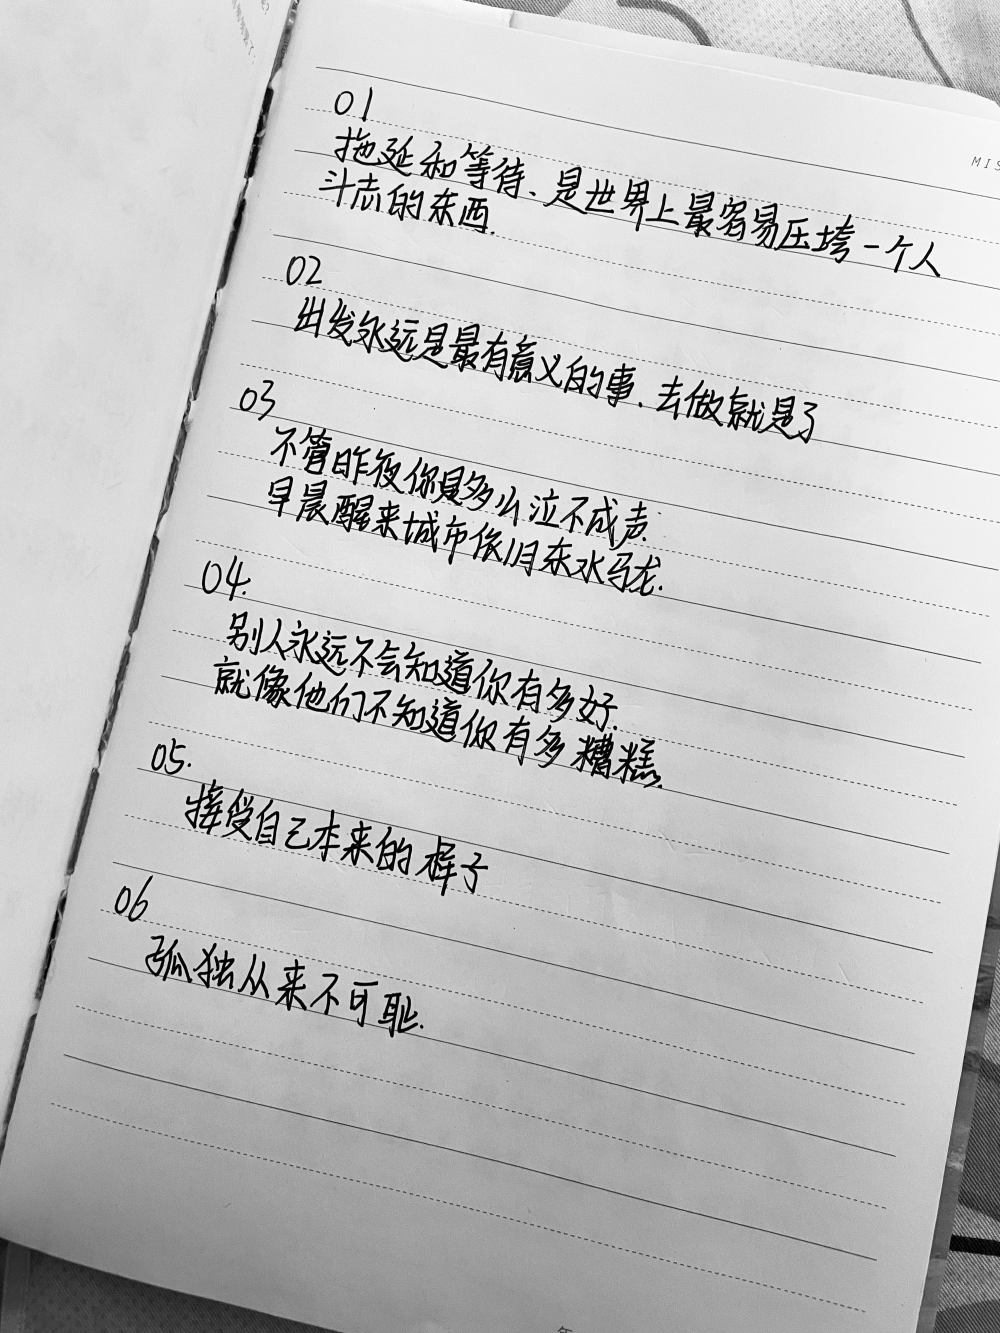 01
MIS
拖延和等待、是世界上最容易压垮一个人
斗志的东西.
02
出发永远是最有意义的事.去做就是了
03
不管昨夜你是多么泣不成声.
早晨醒来城市依旧车水马龙.
04.
别人永远不会知道你有多好.
就像他们不知道你有多糟糕.
05.
接受自己本来的样子
06
孤独从来不可耻.